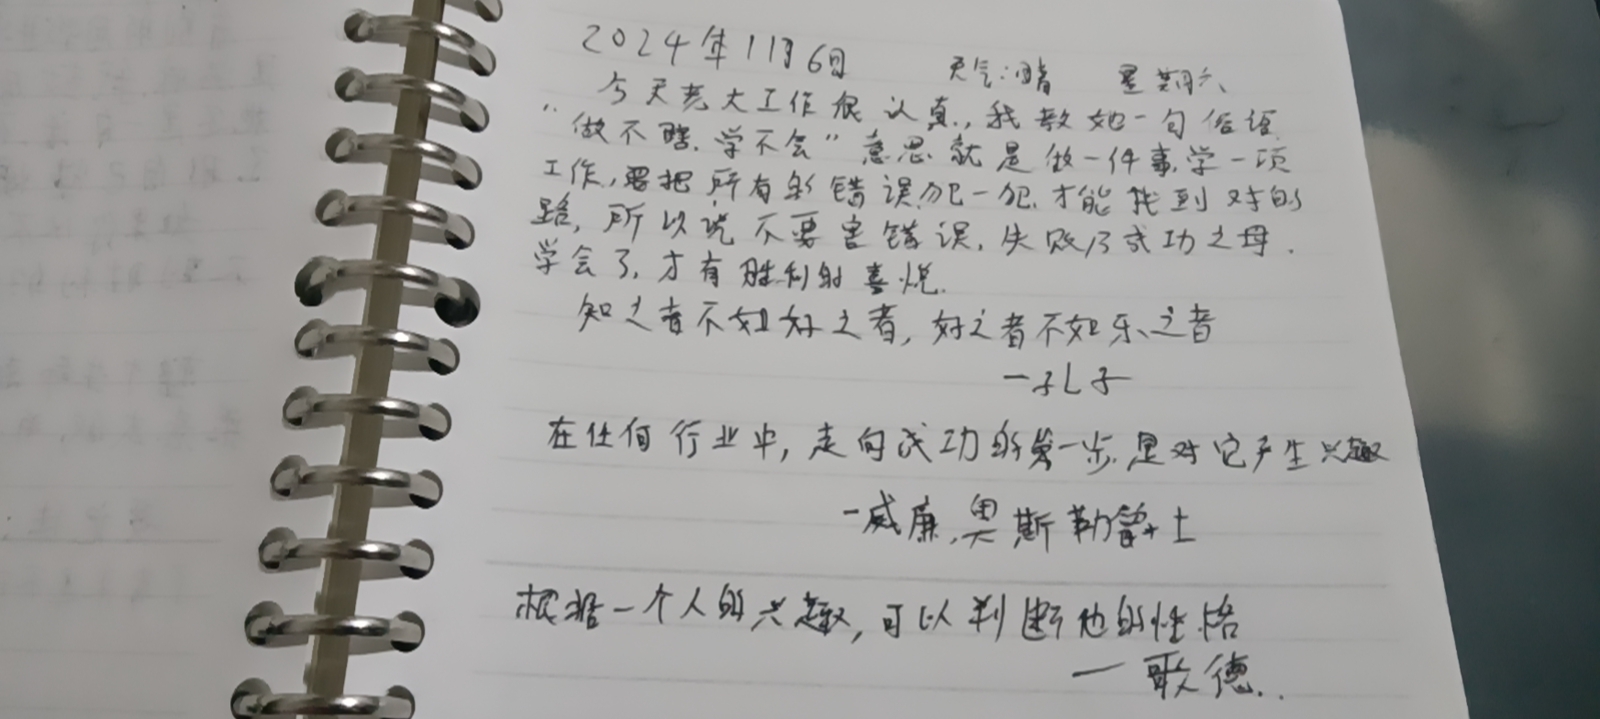 2024年11月6日 天气:晴 星期六
今天老大工作很认真,我教她一句俗语
“做不瞎,学不会”意思就是做一件事,学一项
工作,要把所有的错误犯一犯,才能找到对的
路,所以说不要害错误,失败乃成功之母.
学会了,才有胜利的喜悦.
知之者不如好之者,好之者不如乐之者
一孔子
在任何行业中,走向成功的第一步,是对它产生兴趣
-威廉.奥斯勒爵士
根据一个人的兴趣,可以判断他的性格
一歌德..